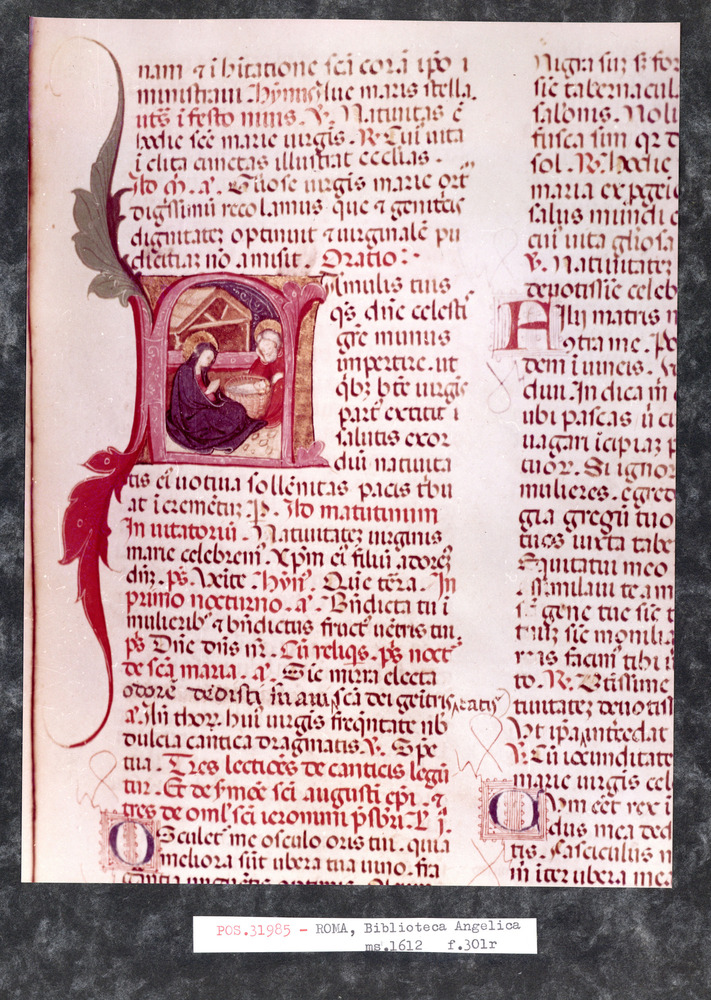 nam ⁊ i hitatione sca cora ipo i
ministraui. Hymnus Aue maris stella.
hodie sce marie uirgis. R. Cui uita
i clita cunctas illustrat ecclias.
Ad m. a. Gliose uirgis marie ort
digissimu recolamus que ⁊ genitcis
dignitatez optinuit ⁊ uirginale pu
dicitiaz no amisit. Oratio:
Famulis tuis
qs dne celesti
gre munus
impertire. ut
qbz bte uirgis
part extitit i
salutis exor
diu natiuita
tis ei uotiua sollenitas pacis tbu
at icremetuz. P. Ad matutinum
In uitatoriu. Natiuitatez uirginis
marie celebrem. Xpm ei filiu adorez
dnz. ps. Uenite. Hyn. Que tera. In
primo nocturno. a. Bndicta tu i
mulierib ⁊ bndictus fruct uentris tui.
ps Dne dns nr. Cu reliqis. ps noct
de sca maria. a. Sic mirra electa
odore dedisti sca dei genitrix
uirgis freqntate nb
dulcia cantica dragmatis. V. Spe
tua. Tres lectioes de canticis legu
tur. Et de smoe sci augusti epi. ⁊
tres de omel sci ieronimi psbri. L i.
Osculet me osculo oris tui. quia
meliora sut ubera tua uino. fra
Nigra suz s for
sic tabernacul
salonis. Noli
fusca sim qr d
sol. R. Hodie
maria ex pgei
salus mundi c
cui uita gliosa
V. Natiuitatez
deuotissie celeb
Filij matris m
dem i uineis.
duu. In dica m
ubi pascas u cu
uagari icipiaz p
tuoz. Si ignor
mulieres. egred
gia greg tuo
tuos iuxta tabe
Equitatui meo
Assimilaui te am
gene tue sic t
sic monilia
facim tibi
to. R. Btissime
tiuitatez deuotiss
Ut ipa intcedat
V. Cu iocunditate
marie uirgis cel
Dum eet rex i
dus mea ded
tis. Fasciculus m
m iter ubera mea
POS.31985 - ROMA, Biblioteca Angelica
ms.1612 f.301r